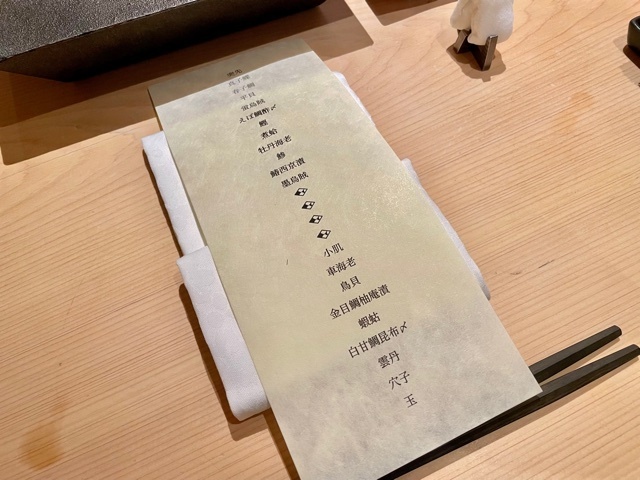 春子鯛
平貝
蛍烏賊
えぼ鯛酢〆
鰹
煮蛤
牡丹海老
鯵
鰆西京漬
墨烏賊
小肌
車海老
鳥貝
金目鯛柚庵漬
蝦蛄
白甘鯛昆布〆
雲丹
穴子
玉